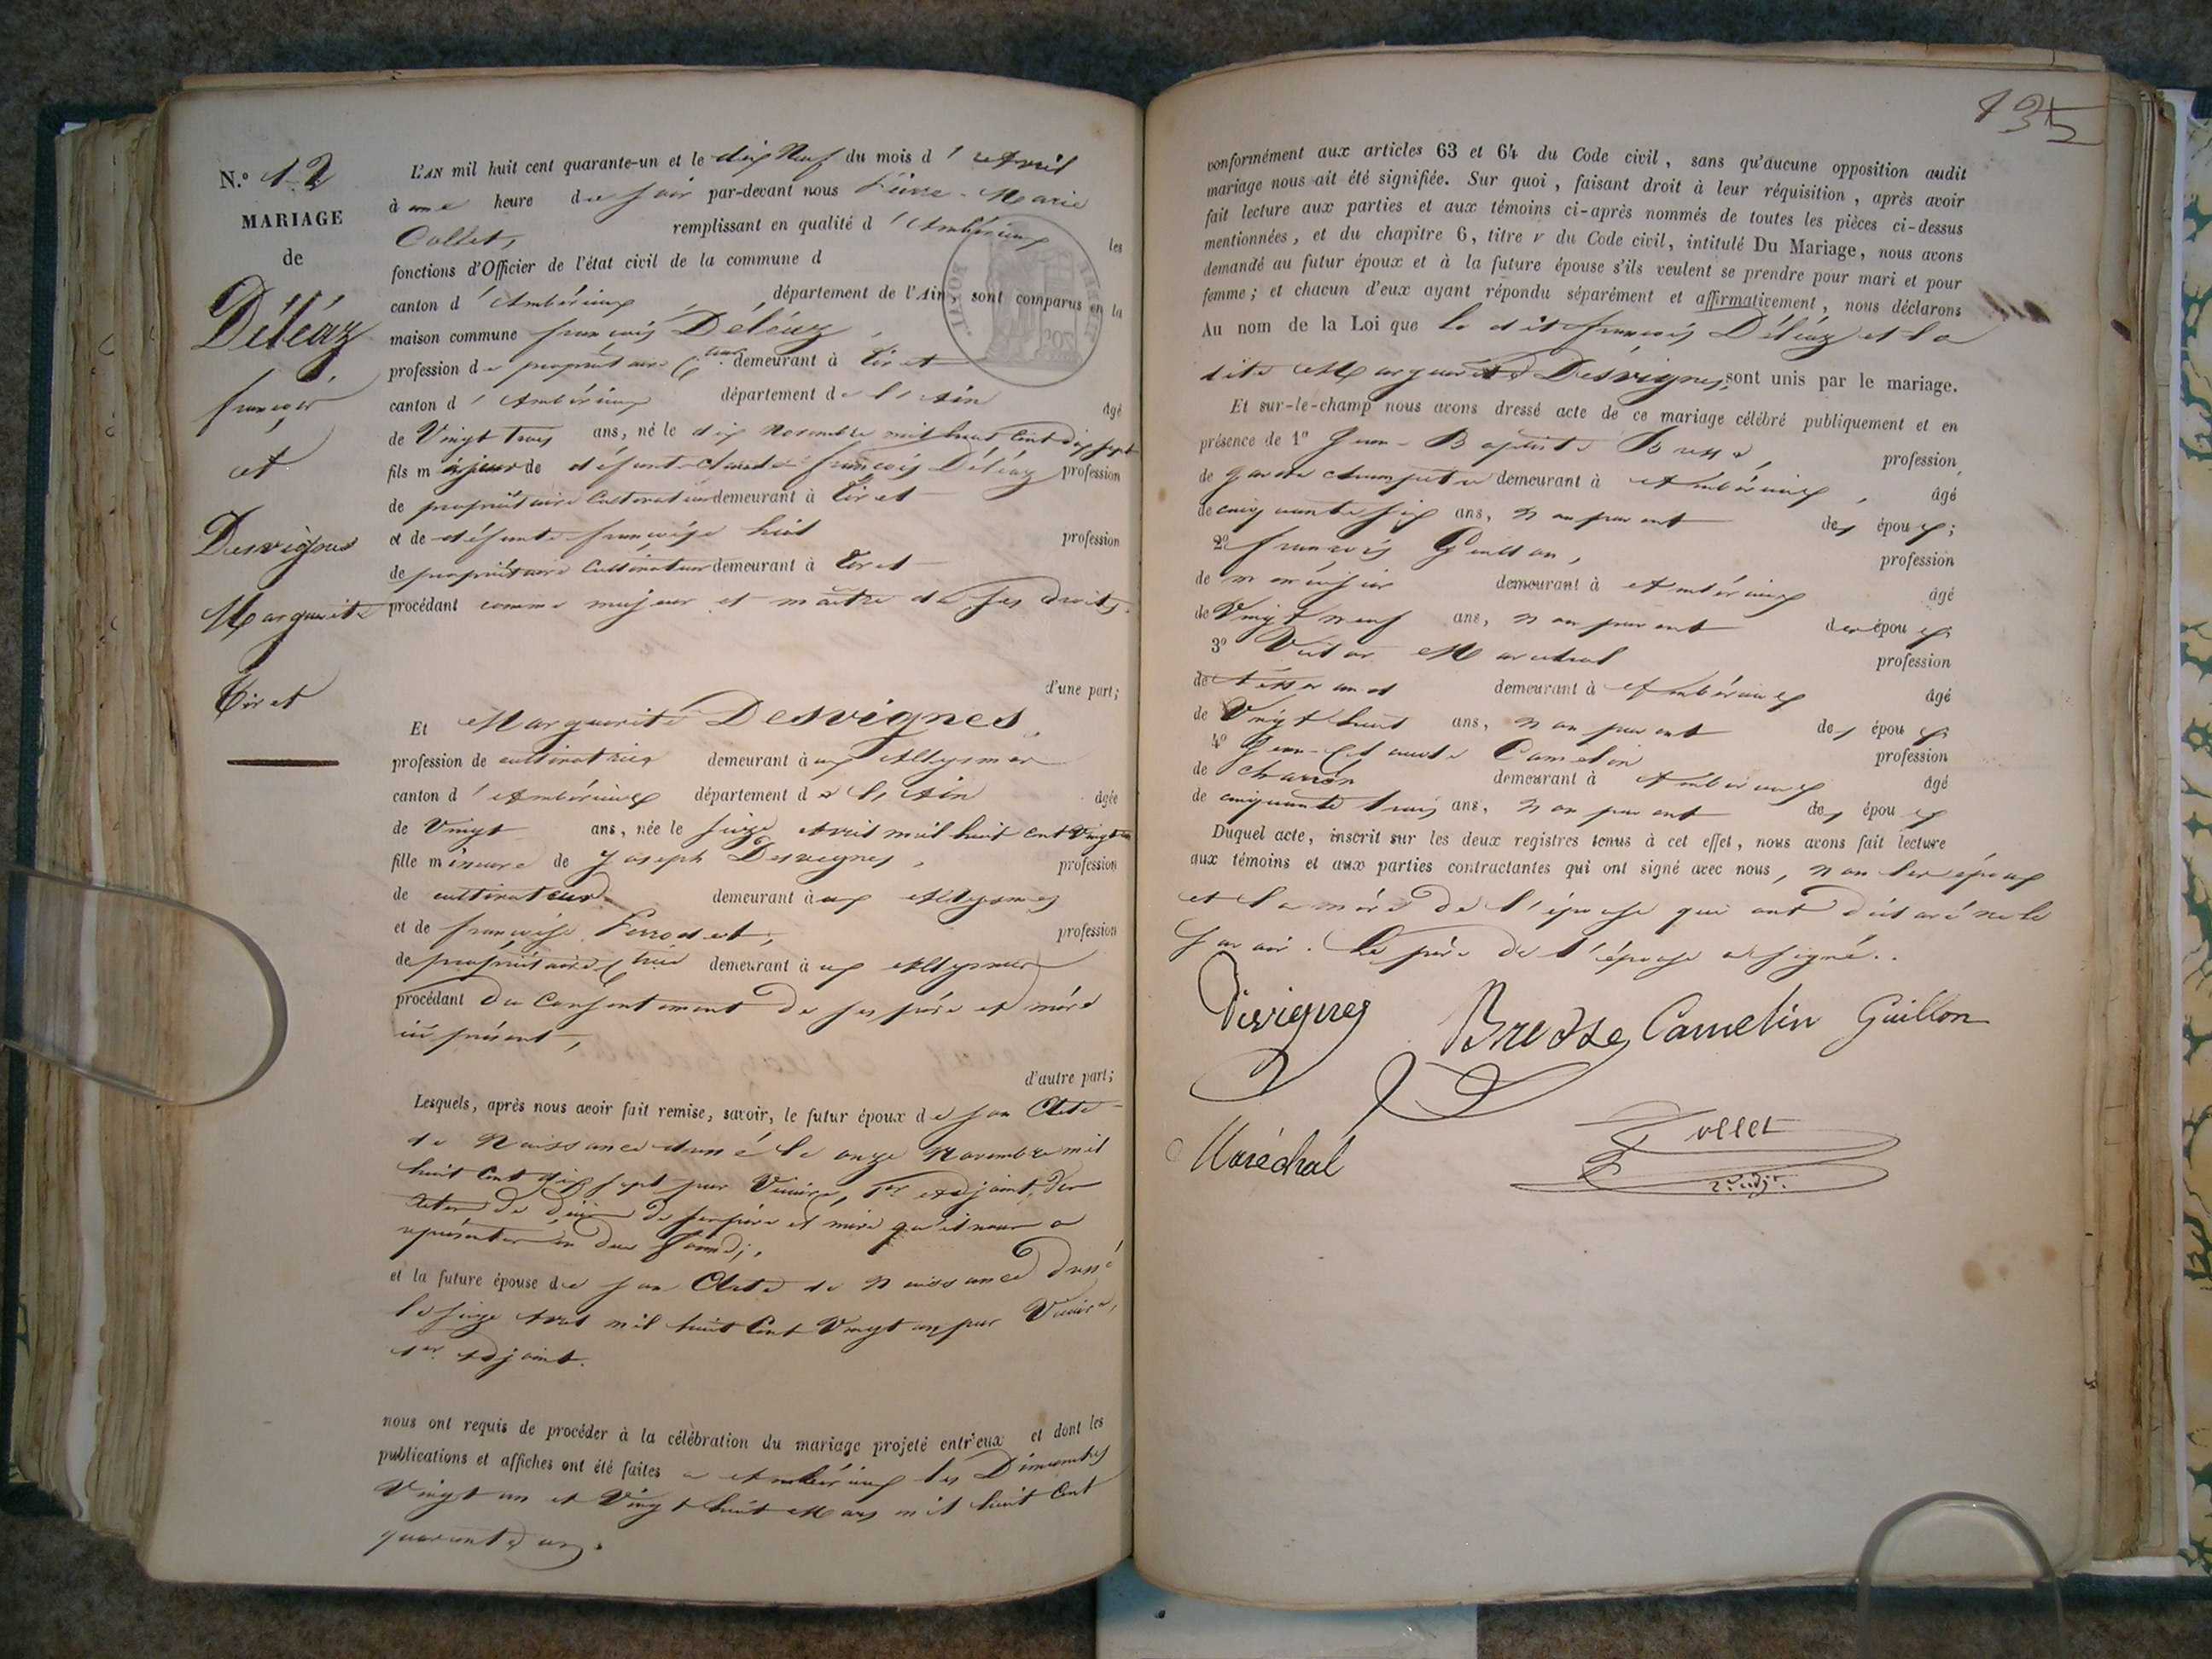 N.º 12
MARIAGE
de
Déléaz
françois
et
Desvignes
Marguerite
Tiret
L'AN mil huit cent quarante-un et le dix Neuf du mois d'Avril
à une heure du soir par-devant nous Marie
Collet, remplissant en qualité d'Ambérieux les
fonctions d'Officier de l'état civil de la commune d
canton d'Ambérieux département de l'Ain, sont comparus en la
maison commune françois Déléaz,
profession de propriétaire demeurant à Tiret
canton d'Ambérieux département de l'Ain âgé
de Vingt trois ans, né le dix Novembre mil huit Cent dix sept
fils majeur de défunt Claude françois Déléaz profession
de propriétaire Cultivateur demeurant à Tiret
et de défunte françoise profession
de propriétaire Cultivateur demeurant à Tiret
procédant comme majeur et maître de ses droits.
d'une part;
Et Marguerite Desvignes,
profession de cultivatrice demeurant aux Allymes
canton d'Ambérieux département de l'Ain âgée
de Vingt ans, née le seize Avril mil huit cent Vingt un
fille mineure de Joseph Desvignes, profession
de cultivateur demeurant aux Allymes
et de françoise Ferrodet, profession
de propriétaire demeurant aux Allymes
procédant du Consentement de ses père et mère
ici présent,
d'autre part;
Lesquels, après nous avoir fait remise, savoir, le futur époux de son Acte
de Naissance donné le onze Novembre mil
huit Cent dix sept par 1er adjoint, des
actes de décès de ses père et mère qu'il nous a
représenter en due forme;
et la future épouse de son Acte de Naissance donné
le seize Avril mil huit Cent Vingt un par
1er adjoint.
nous ont requis de procéder à la célébration du mariage projeté entr'eux et dont les
publications et affiches ont été faites a Ambérieux les Dimanches
Vingt un et Vingt huit Mars mil huit Cent
quarante un.
135
conformément aux articles 63 et 64 du Code civil, sans qu'aucune opposition audit
mariage nous ait été signifiée. Sur quoi, faisant droit à leur réquisition, après avoir
fait lecture aux parties et aux témoins ci-après nommés de toutes les pièces ci-dessus
mentionnées, et du chapitre 6, titre V du Code civil, intitulé Du Mariage, nous avons
demandé au futur époux et à la future épouse s'ils veulent se prendre pour mari et pour
femme; et chacun d'eux ayant répondu séparément et affirmativement, nous déclarons
Au nom de la Loi que le dit françois Déléaz et la
dite Marguerite Desvignes, sont unis par le mariage.
Et sur-le-champ nous avons dressé acte de ce mariage célébré publiquement et en
présence de 1º Jean-Baptiste Bresse, profession
de garde champetre demeurant à Ambérieux, âgé
de cinquante six ans, non parent des époux;
2º françois Guillon, profession
de menuisier demeurant à Ambérieux âgé
de Vingt neuf ans, non parent des époux;
3º Victor Maréchal profession
de tisserand demeurant à Ambérieux âgé
de Vingt huit ans, non parent des époux;
4º Jean-Claude Camelin profession
de charron demeurant à Ambérieux âgé
de cinquante trois ans, non parent des époux
Duquel acte, inscrit sur les deux registres tenus à cet effet, nous avons fait lecture
aux témoins et aux parties contractantes qui ont signé avec nous, non les époux
et la mère de l'épouse qui ont déclaré ne le
savoir. Le père de l'épouse a signé.
Desvignes Bresse Camelin Guillon
Maréchal Collet